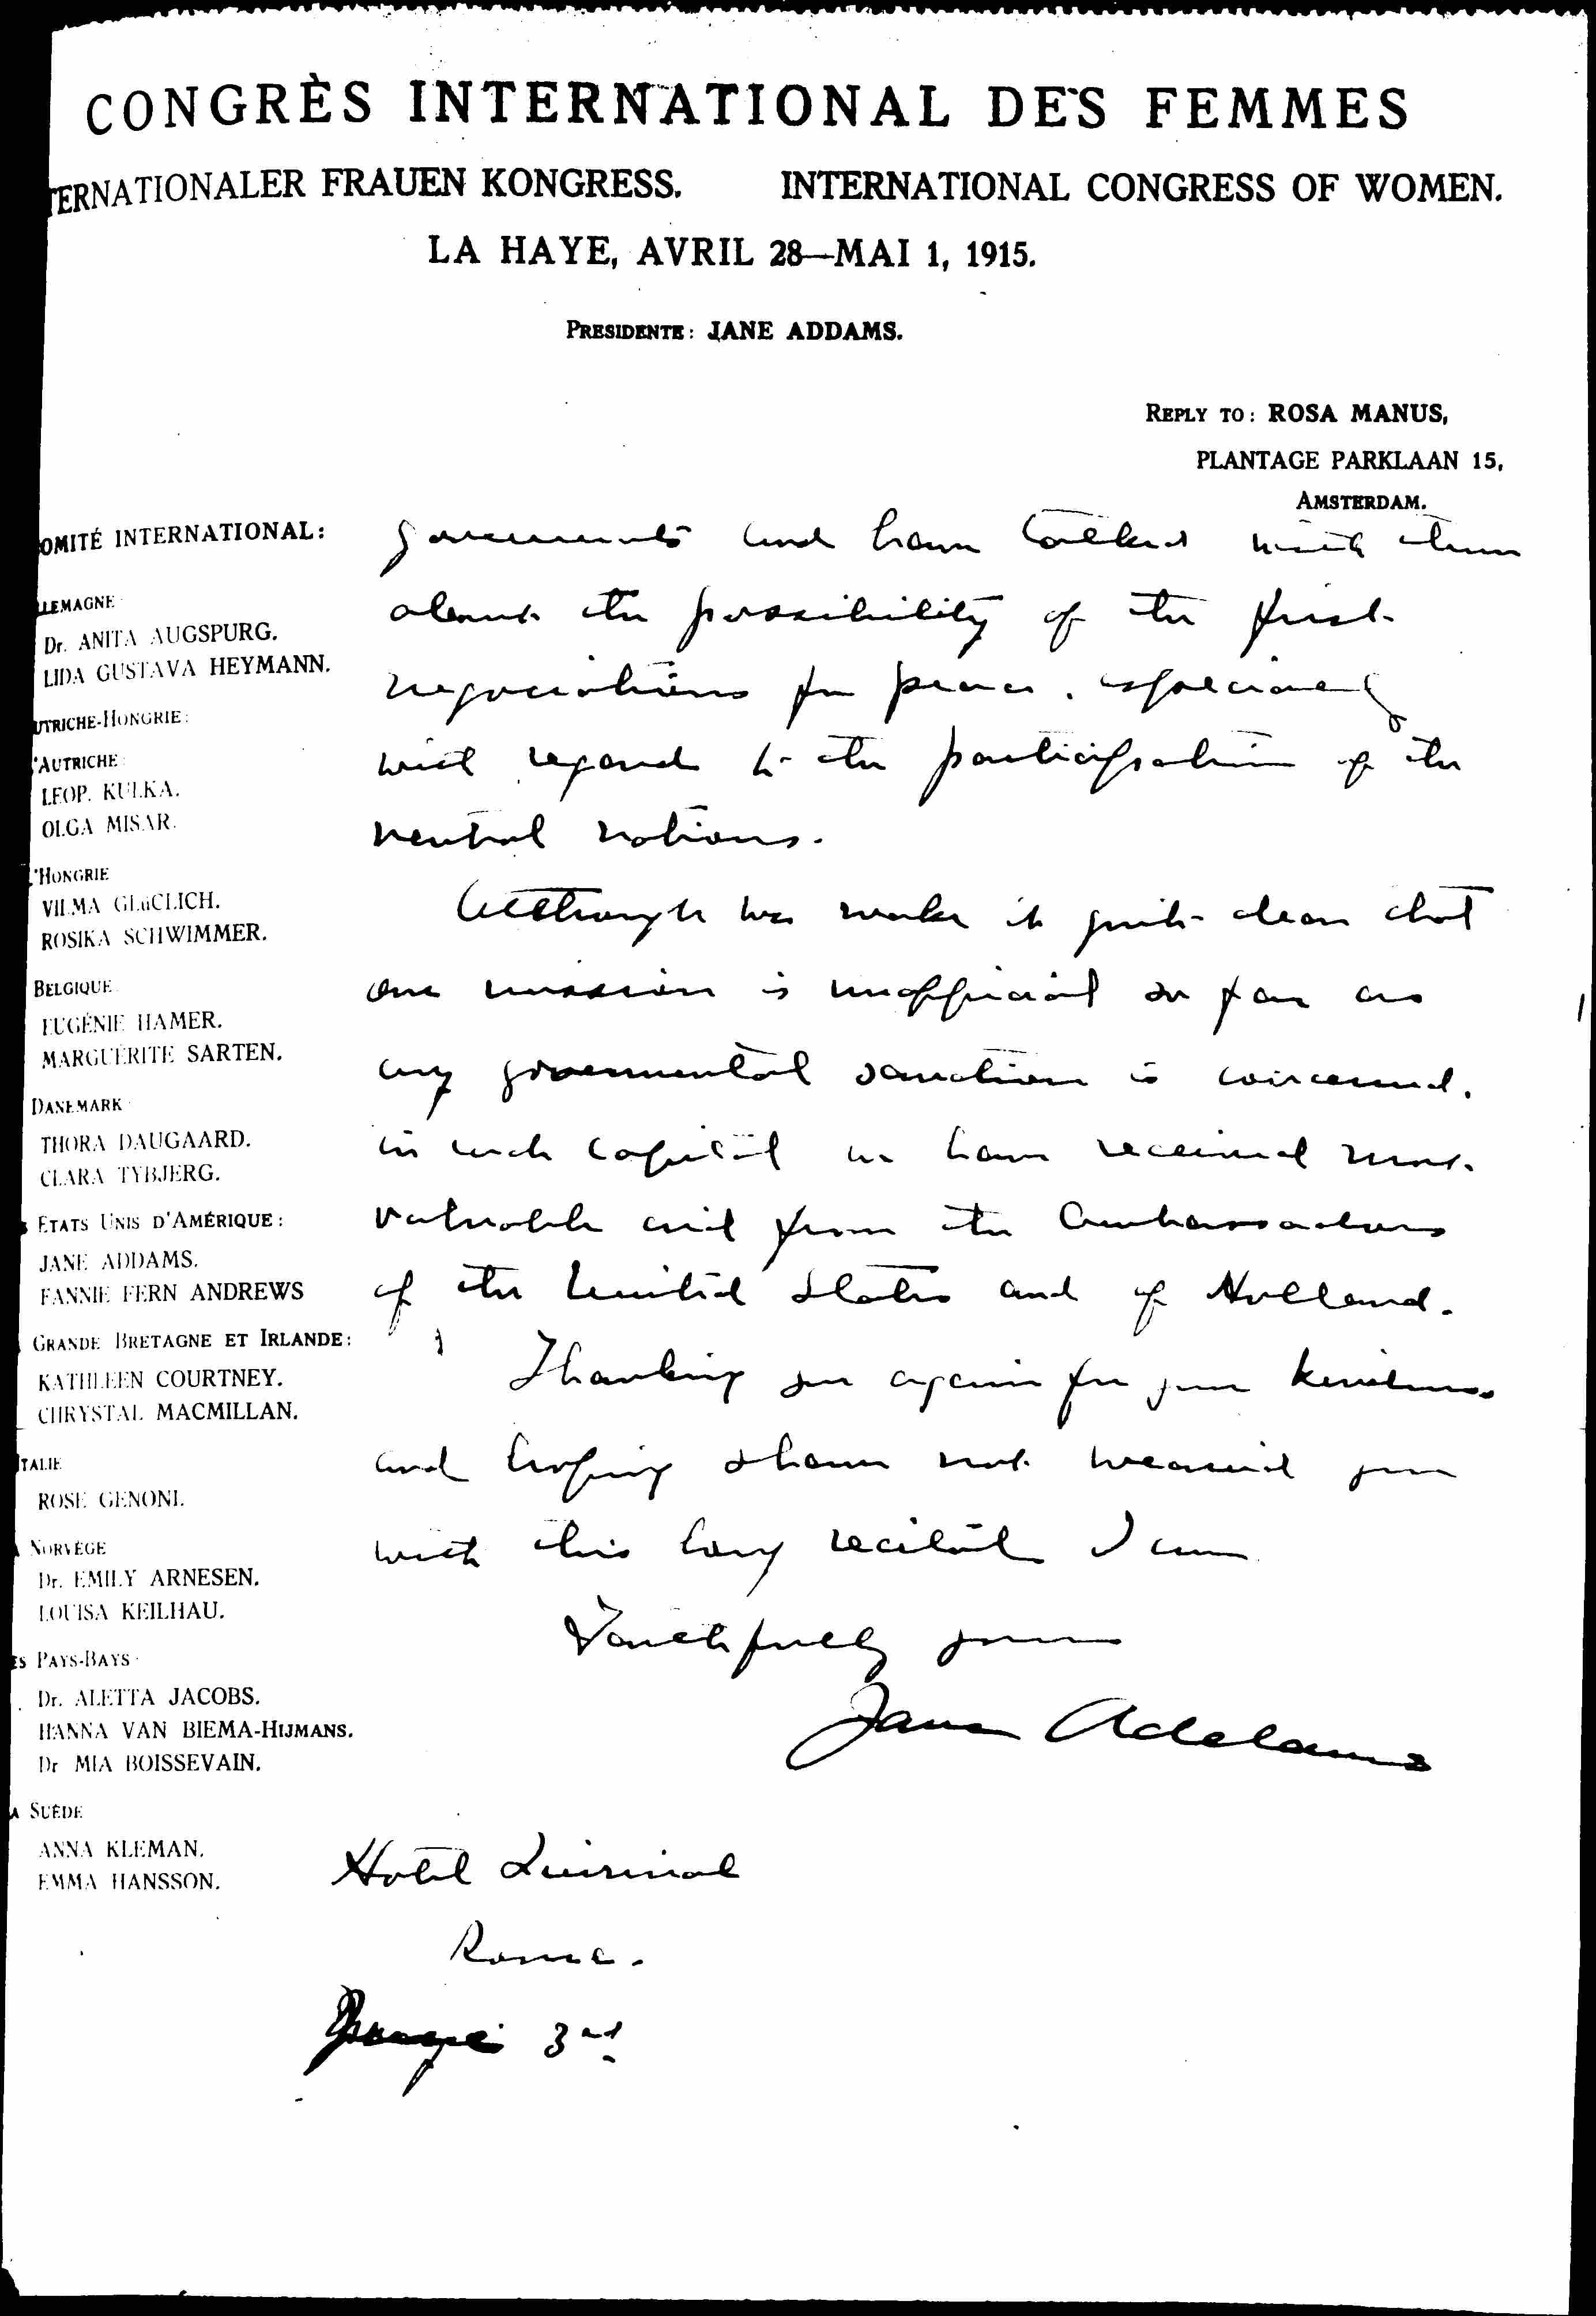 CONGRÈS INTERNATIONAL DES FEMMES
TERNATIONALER FRAUEN KONGRESS. INTERNATIONAL CONGRESS OF WOMEN.
LA HAYE, AVRIL 28—MAI 1, 1915.
PRESIDENTE: JANE ADDAMS.
REPLY TO: ROSA MANUS,
PLANTAGE PARKLAAN 15,
AMSTERDAM.
OMITÉ INTERNATIONAL:
LLEMAGNE
Dr. ANITA AUGSPURG.
LIDA GUSTAVA HEYMANN.
UTRICHE-HONGRIE:
'AUTRICHE:
LEOP. KULKA.
OLGA MISAR.
L'HONGRIE
VILMA GLüCLICH.
ROSIKA SCHWIMMER.
BELGIQUE
EUGÉNIE HAMER.
MARGUÉRITE SARTEN.
DANEMARK
THORA DAUGAARD.
CLARA TYBJERG.
S ETATS UNIS D'AMÉRIQUE:
JANE ADDAMS.
FANNIE FERN ANDREWS
GRANDE BRETAGNE ET IRLANDE:
KATHLEEN COURTNEY.
CHRYSTAL MACMILLAN.
ITALIE
ROSE GENONI.
A NORVÉGE
Dr. EMILY ARNESEN.
LOUISA KEILHAU.
ES PAYS-BAYS
Dr. ALETTA JACOBS.
HANNA VAN BIEMA-HIJMANS.
Dr MIA BOISSEVAIN.
A SUÉDE
ANNA KLEMAN.
EMMA HANSSON.
governments and have talked with them
about the possibility of the first
negociations for peace, especially
with regard to the participation of the
neutral nations.
Although we make it quite clear that
our mission is unofficial so far as
any governmental sanction is concerned,
in each capital we have received most
valuable aid from the Ambassadors
of the United States and of Holland.
Thanking you again for your kindness
and hoping I have not wearied you
with this long recital I am
Faithfully yours
Jane Addams
Hotel Quirinal
Rome.
3rd